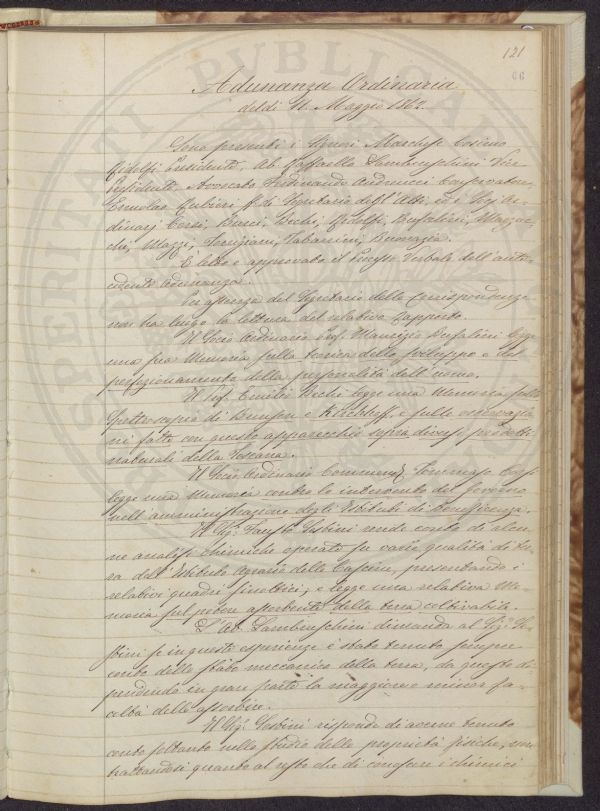 121
66
Adunanza Ordinaria
del dì 11. Maggio 1862.
Sono presenti i Signori Marchese Cosimo
Ridolfi Presidente, Ab. Raffaello Lambruschini Vice
Presidente, Avvocato Ferdinando Andreucci Conservatore,
Ermolao Rubieri f. di Segretario degli Atti, ed i Sigg. Or-
dinarj Corsi, Busci, Bechi, Ridolfi, Bufalini, Mazzoc-
chi, Mazzi, Torrigiani, Tabarrini, Buonazia.
È letto e approvato il Processo Verbale dell'ante-
cedente adunanza.
In assenza del Segretario delle Corrispondenze
non ha luogo la lettura del relativo Rapporto.
Il Socio Ordinario Prof. Maurizio Bufalini legge
una sua Memoria sulla teorica dello sviluppo e del
perfezionamento della personalità dell'uomo.
Il Prof. Emilio Bechi legge una Memoria sulla
Spettroscopia di Bunsen e Kirchhoff e sulle osservazio-
ni fatte con questo apparecchio sopra diversi prodotti
naturali della Toscana.
Il Socio Ordinario Commend. Tommaso Corsi
legge una Memoria contro lo intervento del Governo
nell'amministrazione degli Istituti di beneficenza.
Il Sig. Fausto Sestini rende conto di alcu-
ne analisi chimiche operate su varie qualità di ter-
ra dell'Istituto Agrario delle Cascine, presentando i
relativi quadri sinottici; e legge una relativa Me-
moria sul potere assorbente della terra coltivabile.
L'Ab. Lambruschini dimanda al Sig. Se-
stini se in queste esperienze è stato tenuto sempre
conto dello stato meccanico della terra, da questo di-
pendendo in gran parte la maggiore o minor fa-
coltà dello assorbire.
Il Sig. Sestini risponde di averne tenuto
conto soltanto nello studio delle proprietà fisiche, non
trattandosi quanto al resto che di conoscere i chimici